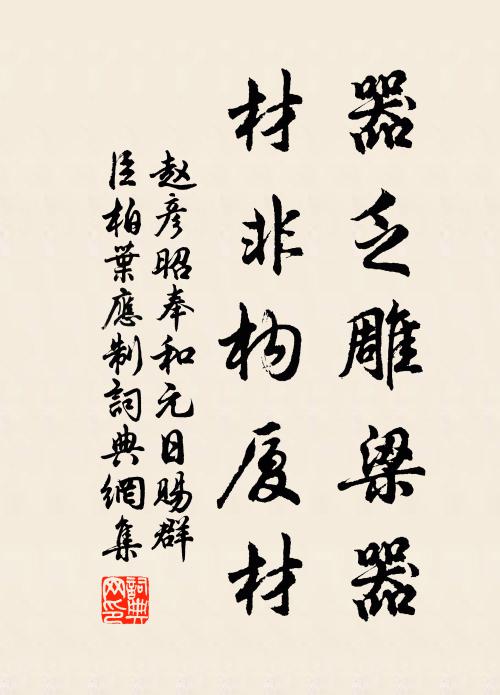 器乏雕梁器
材非构厦材
赵彦昭奉和元日赐群
臣柏葉應制詞典網集
詞典
网印